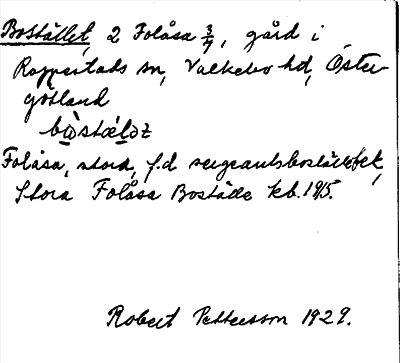 Bostället, 2 Folåsa 3/7, gård i
Rappestads sn, Valkebo hd, Öster-
götland
bωstǽləz
Folåsa, stora, f.d sergeantsboställe fek,
Stora Folåsa Boställe kb. 1915.
Robert Pettersson 1929.